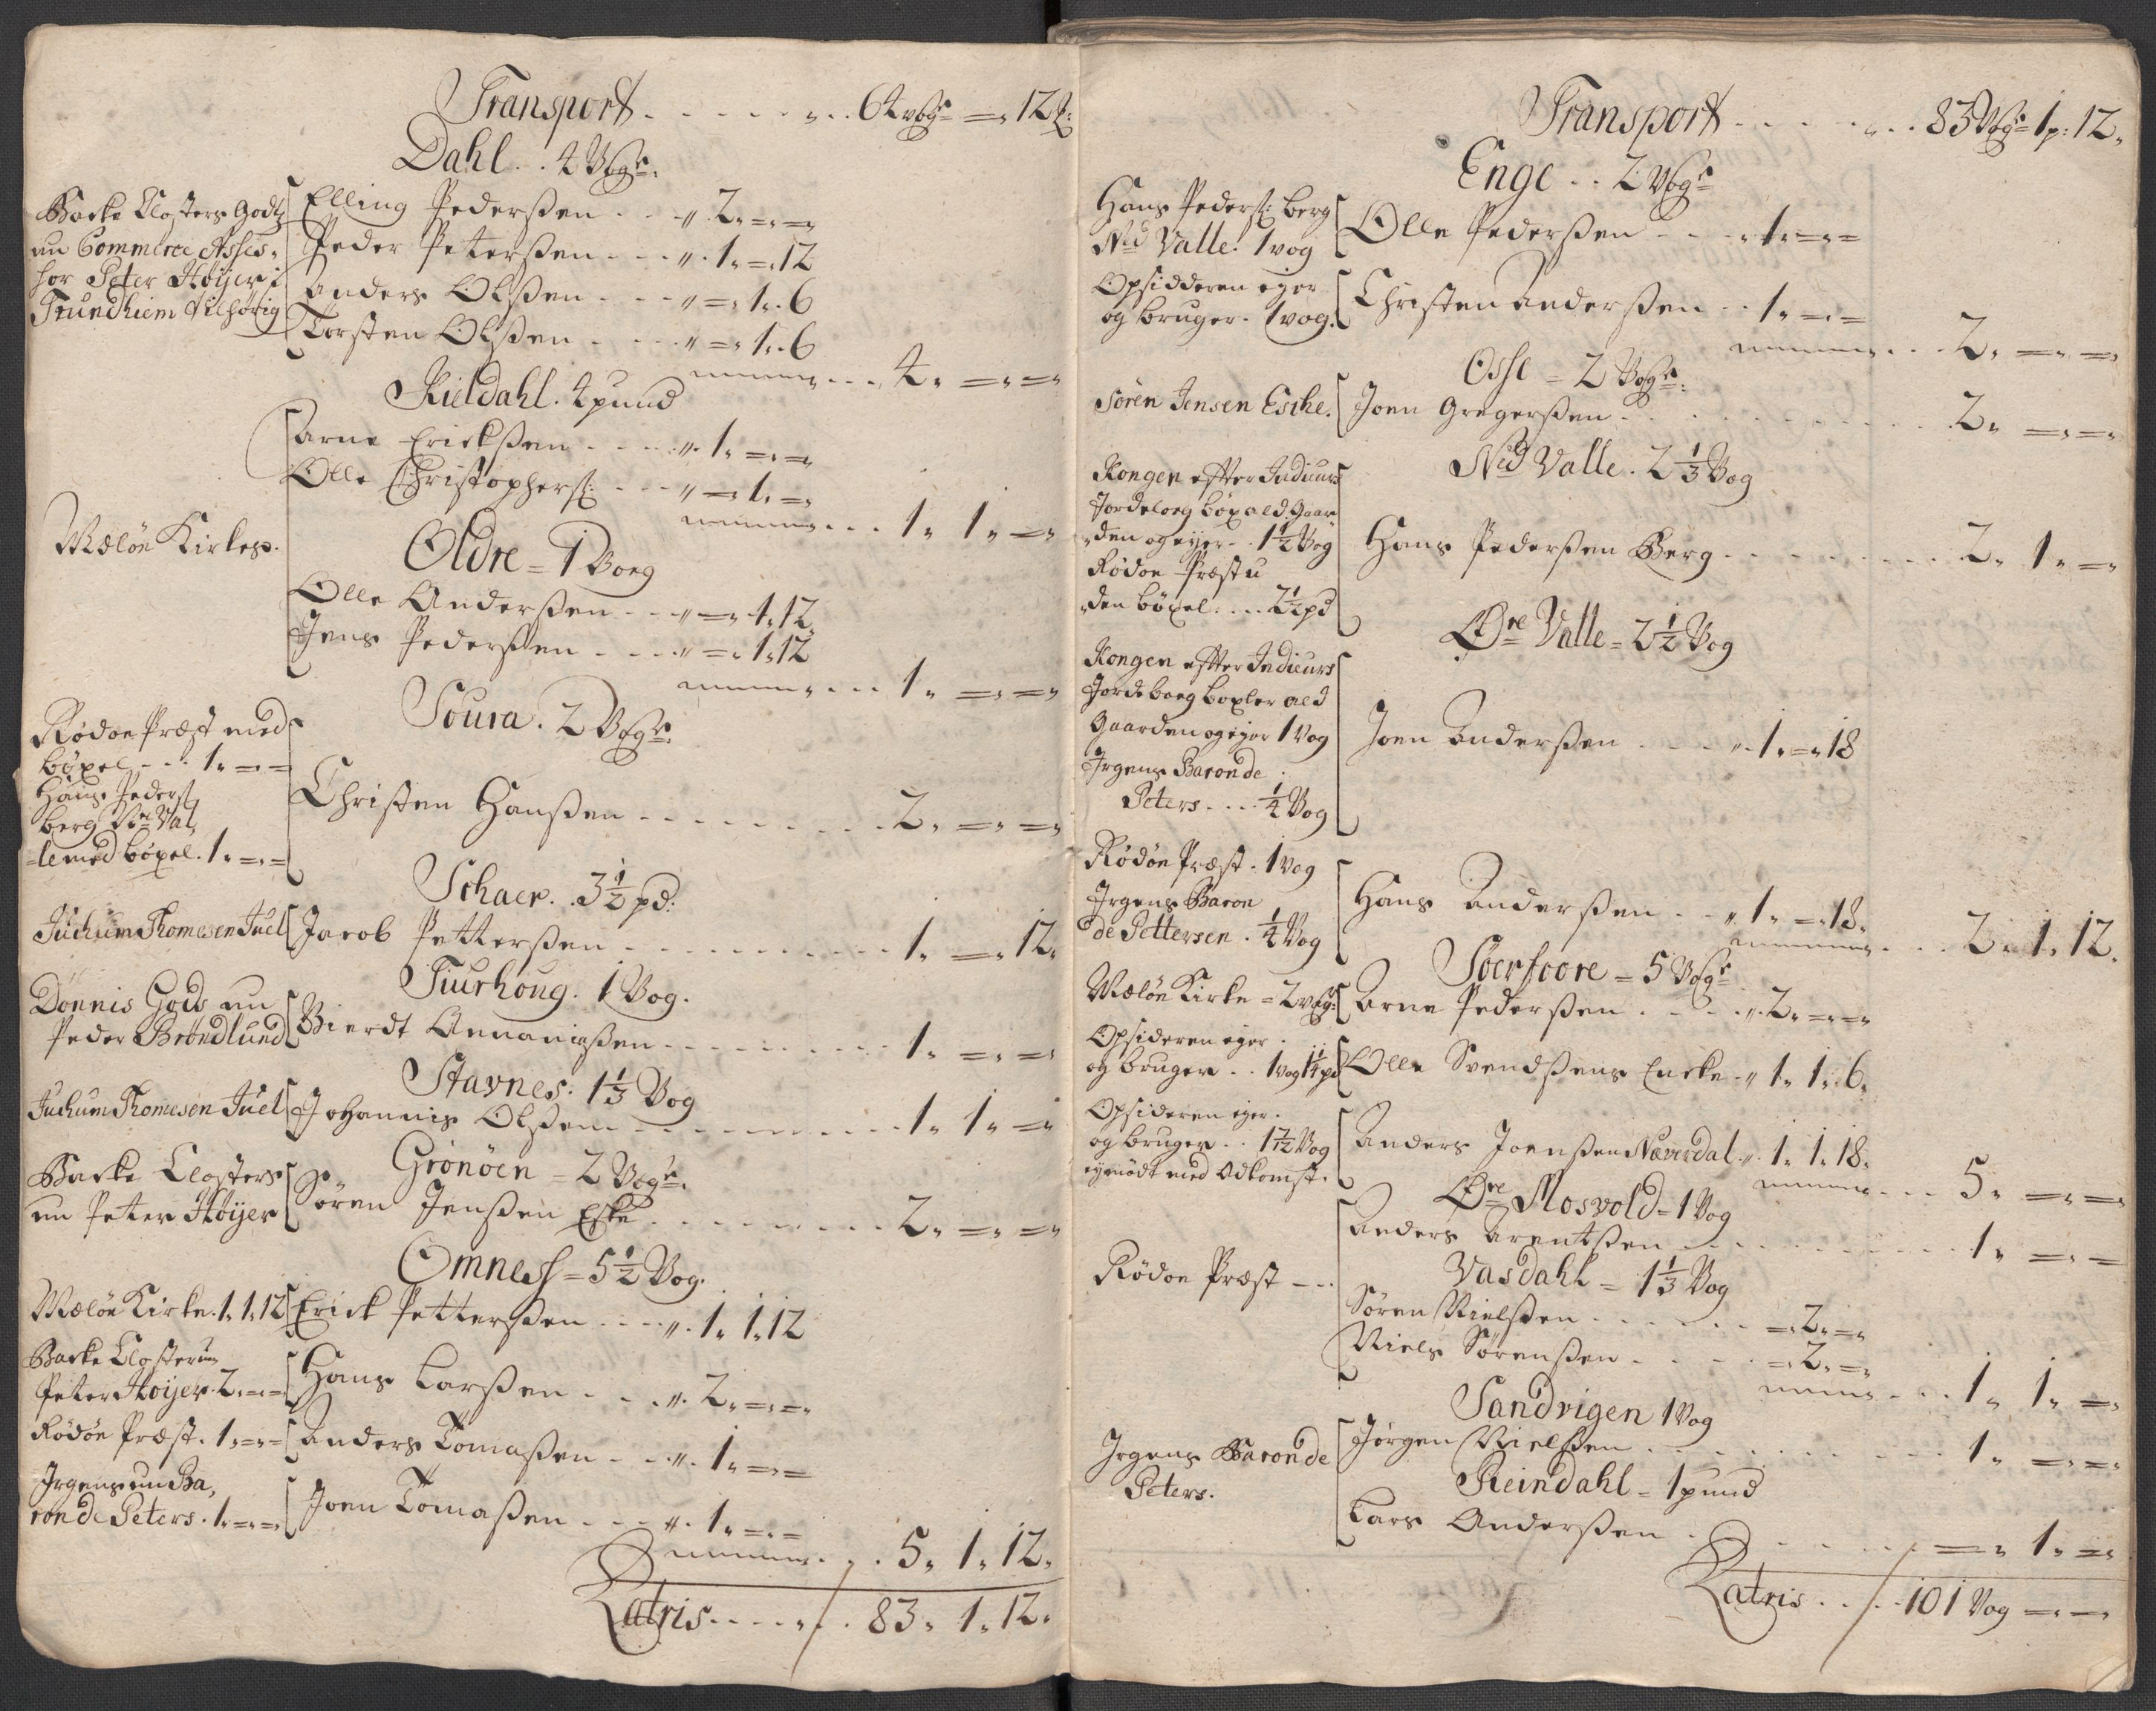 Transport - - - - - „ . . 64 vog r = „ 12 ℔:
Dahl . . 4 Vog r:
Backe Closters Godtz
nu Commerce Asses-
sor Peter Höijer i
Trundhiem tilhörig
Elling Pederßen . . „ 2„ = „ =
Peder Peterßen . . . „ . 1„ = „ 12
Anders Olßen . . . „ = „ 1 „ . 6
Torsten Olßen . . . . „ = „ 1 „ . 6
. . . 4„ = „ =
Kieldahl . 4 pund
Arne Erickßen . . . . „ . 1„ = „ =
Olle Christophers: - - - „ = 1„ =
. . . 1„ 1„ =
Mælöe Kirkes.
Oldre = 1 Voug
Olle Anderßen . . . „ = „ 1„ 12
Jens Pederßen . . . . „ = „ 1„ 12
. . . 1„ = „ =
Soura . 2 Vog r:
Rödöe Præst med
böxel - - - 1„ = „ =
Hans Peders:
berg N re Val,
=le med böxel . 1„ = „ =
Christen Hanßen . . . . . . . . . 2„ = „ =
Schaer . . 3 1/2 pd:
Juchum Thomesen Juel
Jacob Petterßen . . . . . . . . . 1„ = „ 12„
Tiurhoug . 1 Vog .
Dönnis Gods nu
Peder Bröndlund
Bierdt Ananiaßen - - - - - - - - - 1„ = „ =
Stavnes: 1 1/3 Vog
Juchum Thomesen Juel
Johannis Olßen . . . . . . . . . 1„ 1„ =
Grönöen = 2 Vog r.
Backe Closters
nu Peter Höijer
Sören Jenßen Eske . . . . . . . . 2„ = „ =
Omness = 5 1/2 Vog .
Mælöe Kirke . 1„ 1„ 12
Erick Petterßen . . . . „ . 1„ 1„ 12
Backe Closter nu
Peter Höijer . 2„ = „ =
Hans Larßen . . . „ . 2„ = „ =
Rödöe Præst . 1„ = „ =
Anders Tomaßen . . . „ . 1„ = „ =
Irgens nu Ba,
ron de Peters . 1„ = „ =
Joen Tomaßen . . . „ . 1„ = „ =
. . . 5„ 1„ 12„
Latris . . . . „ / . . 83„ 1„ 12„
Transport - - - - - „ . . 83 Vog r 1 p: 12„
Enge . . 2 Vog r
Hans Peders: berg
Ned Valle . 1 vog
Olle Pederßen . . . . „ 1„ = „ =
Opsidderen eijer
og bruger . 1 vog .
Christen Anderßen . . 1„ = „ =
. . . 2„ = „ =
Osse = 2 Vog r:
Sören Jensen Esche .
Joen Gregerßen . . . . . . . . . . . 2„ = „ =
Ned Valle . 2 1/3 Vog
Kongen efter Indiciurs
Jordebog böxel ald Gaar-
den og eijer . . 1 1/2 Vog
Rödöe Præst u
den böxel . . . . 2 1/2 pd
Hans Pederßen Berg . . . . . . . . 2„ 1„ =
Ø re Valle = 2 1/2 Vog
Kongen efter Indicurs
Jordebog boxler ald
Gaarden og eijer 1 Vog
Irgens Baron de
Peters . . . . 1/4 Vog
Joen Anderßen . . . . „ . 1„ = „ 18
Rödöe Præst . 1 Vog
Irgens Baron
de Pettersen . 1/4 Vog
Hans Anderßen . . „ 1„ = „ 18„
. . . 2„ 1„ 12„
Soerfoore = 5 Vog r
Mælöe Kirke = 2 vog r:
Arne Pederßen . . . . „ 2„ = „ =
Opsideren eijer .
og bruger . . 1 vog 1 1/4 pd
Olle Svendßens Encke . „ 1„ 1„ 6„
Opsideren eijer .
og bruger . . 1 1/2 Vog
Anders Joenßen Næverdal . „ . 1„ 1„ 18„
. . . 5„ = „ =
Ø re Mosvold = 1 Vog
Anders Arentßen . . . . . . . . . . . 1„ = „ =
Rödöe Præst - - -
Vasdahl = 1 1/3 Vog
Sören Nielßen . . . . . . = „ 2„ =
Niels Sörenßen . . . . . = „ 2„ =
. . . 1„ 1„ =
Sandvigen 1 Vog
Irgens Baron de
Peters .
Jörgen Nielßen . . . . . . . . . . 1„ = „ =
Reindahl = 1 pund
Lars Anderßen . . . . . . . . = „ 1„ =
Latris . . / . . 101 Vog = „ =